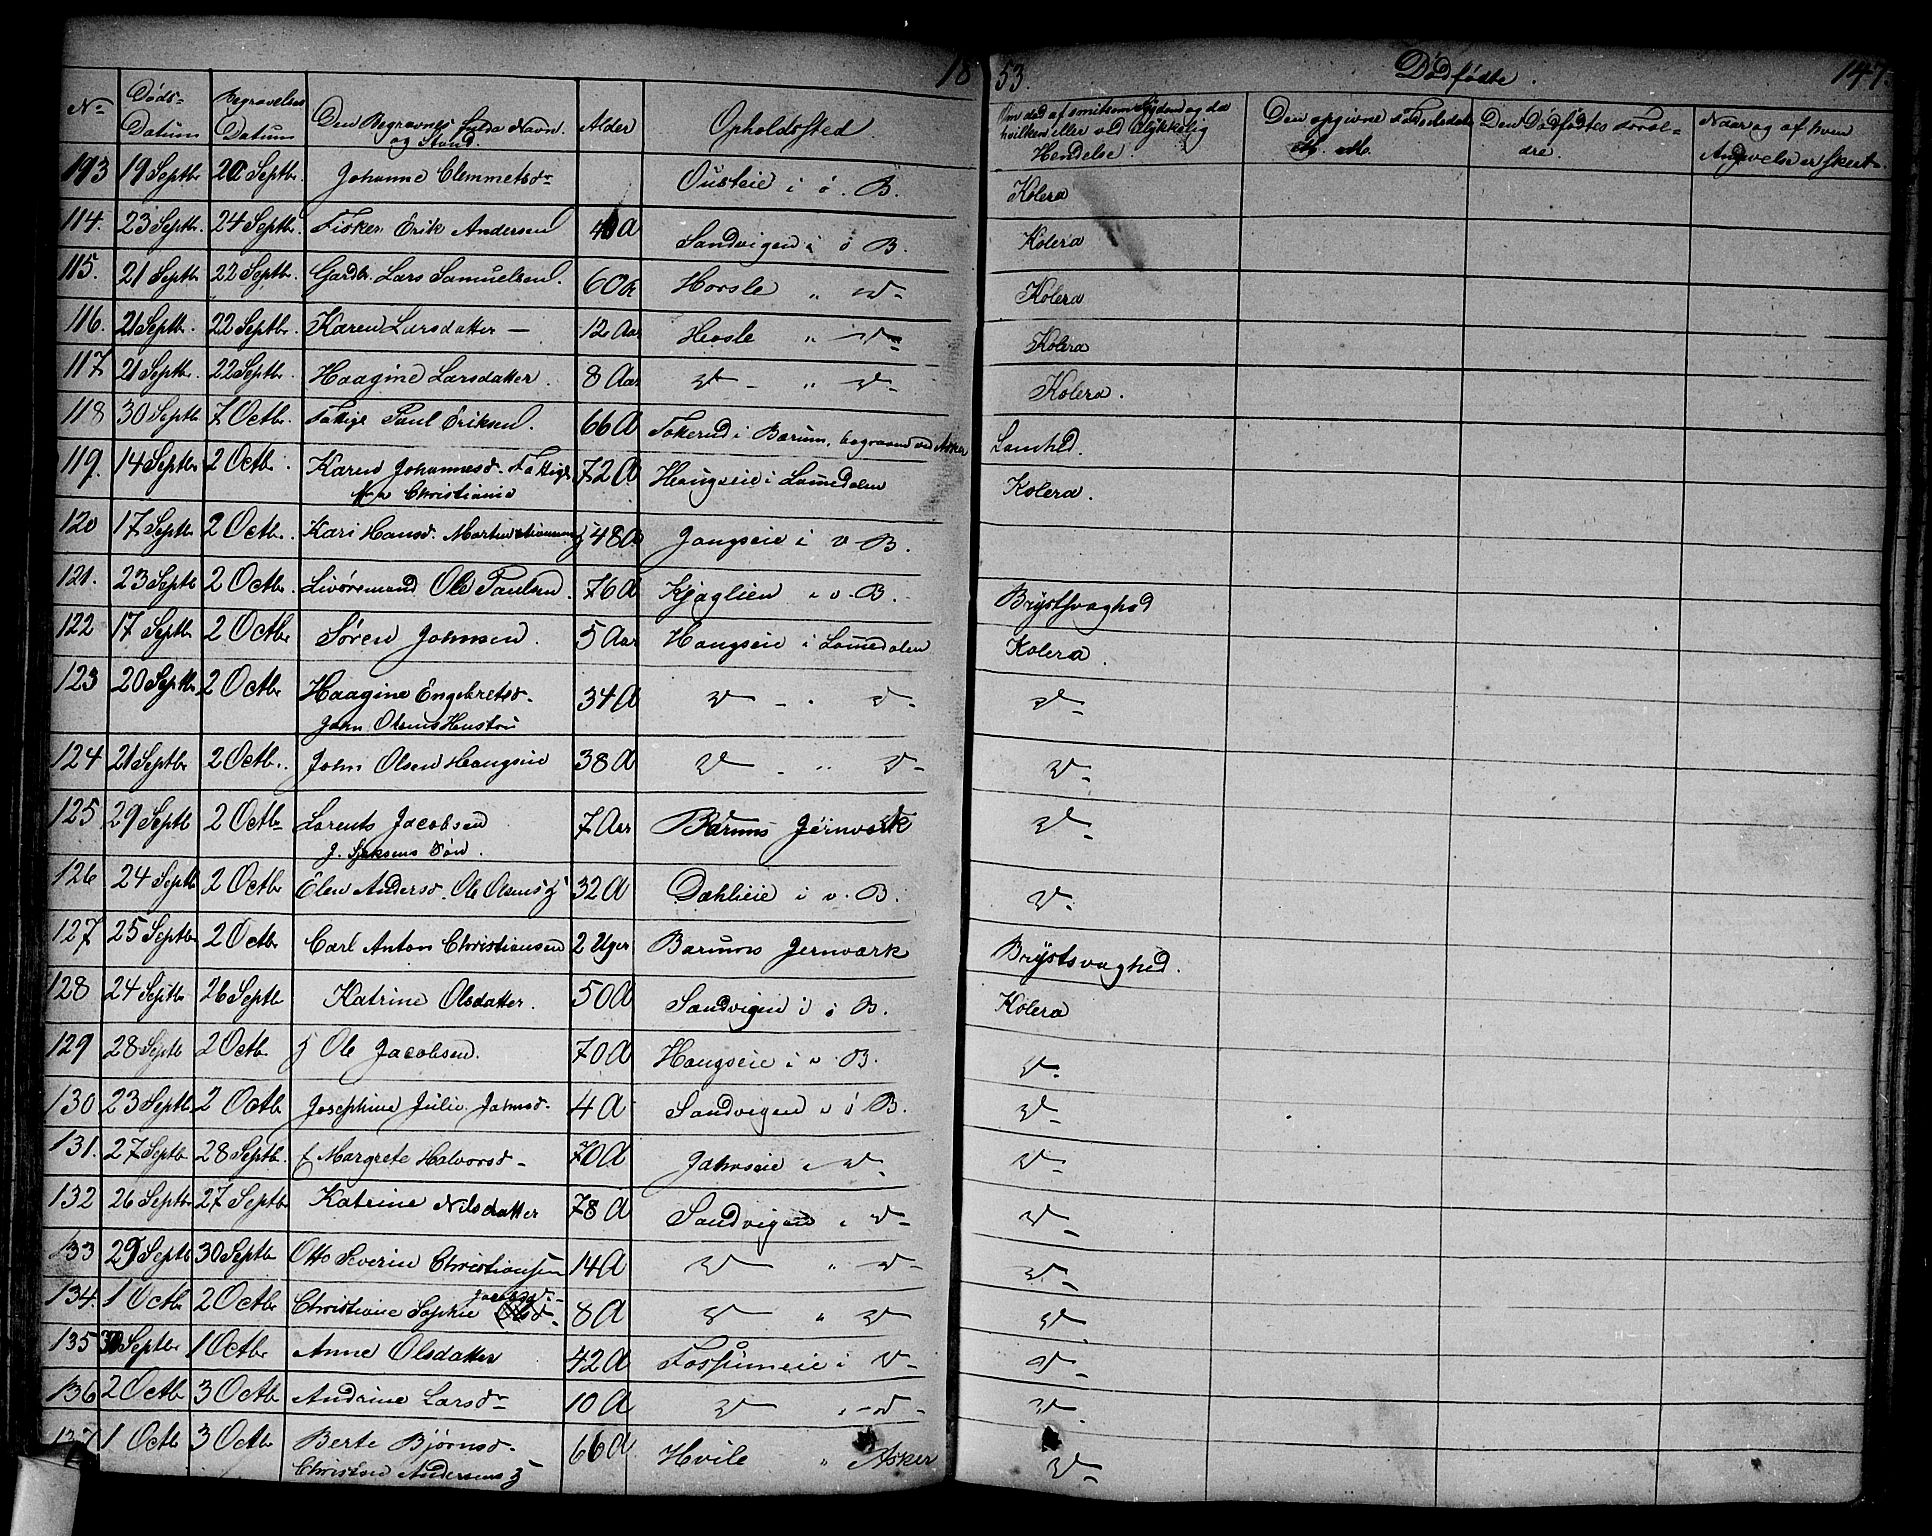 18 53. Dødfødte. 147
No Døds-Datum Begravelses Datum Den Begravnes fulde Navn og Stand. Alder Opholdssted. Om død af smitsom Sygdom og da hvilken eller ved Ulykkelig Hendelse. Den opgivne Fødselsdatum. Den Dødfødtes Foreldre. Naar og af hvem Angivelse er skeet.
193 19 Septbr 20 Septbr. Johanne Clemmetsdr Ousteie i ø. B. Kolera
114. 23 Septbr. 24 Septbr. Fisker Erik Andersen 40 A Sandvigen i ø B. Kolera
115. 21 Septbr 22 Septbr. Gardbr. Lars Samuelsen. 60 A Horsle " do Kolera
116. 21 Septbr. 22 Septbr. Karen Larsdatter - 12 Aar Horsle " do Kolera
117 21 Septbr. 22 Septbr. Haagine Larsdatter. 8 Aar do - " do Kolera.
118 30 Septbr 7 Octbr. Fattige Paul Eriksen. 66 A Tokerud i Barum, begraven ved Asker Lamhed.
119. 14 Septbr 2 Octbr. Karen Johannesd. Fattige 72 A Haugseie i Lomedalen Kolera.
fra Christiania
120 17 Septbr 2 Octbr. Kari Hansd. 48 A Jongseie i v B.
121. 23 Septbr 2 Octbr. Livøremand Ole Paulsen. 76 A Kjaglien i v. B. Brystsvaghed
122 17 Septbr 2 Octbr Søren Johnsen. 5 Aar Haugseie i Lomedalen Kolera.
123 20 Septbr 2 Octbr Haagine Engebretsd. 34 A do - " do do
John Olsens Hustru
124 21 Septbr 2 Octbr. John Olsen Haugseie 38 A do - " do do
125 29 Septb 2 Octbr Lorents Jacobsen 7 Aar Barums Jernvark do
J. Søn.
126 24 Septb 2 Octbr Elen Andersd. Ole Olsens g 32 A Dæhlieie i v. B. do
127 25 Septbr 2 Octbr Carl Anton Christiansen 2 Uger Barums Jernvark Brystsvaghed.
128 24 Septbr 26 Septbr Katrine Olsdatter. 50 A Sandvigen i ø B. Kolera
129 28 Septb 2 Octbr g Ole Jacobsen. 70 A Haugseie i v. B. do
130 23 Septb 2 Octbr Josephine Julie Johnsd. 4 A Sandvigen i ø B. do
131. 27 Septb 28 Septbr. f Margrete Halvorsd 70 A Jahrseie i do do
132 26 Septbr 27 Septbr Katrine Nilsdatter 78 A Sandvigen i do do
133 29 Septb 30 Septbr Otto Severin Christiansen 14 A do " do do
134. 1 Octbr 2 Octbr Christiane Sophie Jacobsd. 8 A do " do do
135 30 Septbr 1 Octbr Anne Olsdatter 42 A Fossumeie i do do
136 2 Octbr 3 Octbr Andrine Larsdr 10 A do i do do
137 1 Octb 3 Octbr Berte Bjørnsd. 66 A Hvile " Asker do
Christen Andersens g